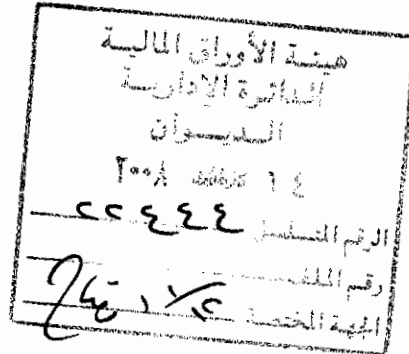 هيئة الأوراق المالية
الدائرة الإدارية
الديوان
٢٠٠٨
الرقم المتسلسل ٢٢٤٤٤
رقم الملف
الجهة المختصة